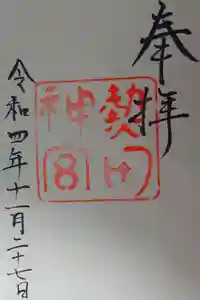 奉拝
熱田
神宮
令和四年十一月二十七日